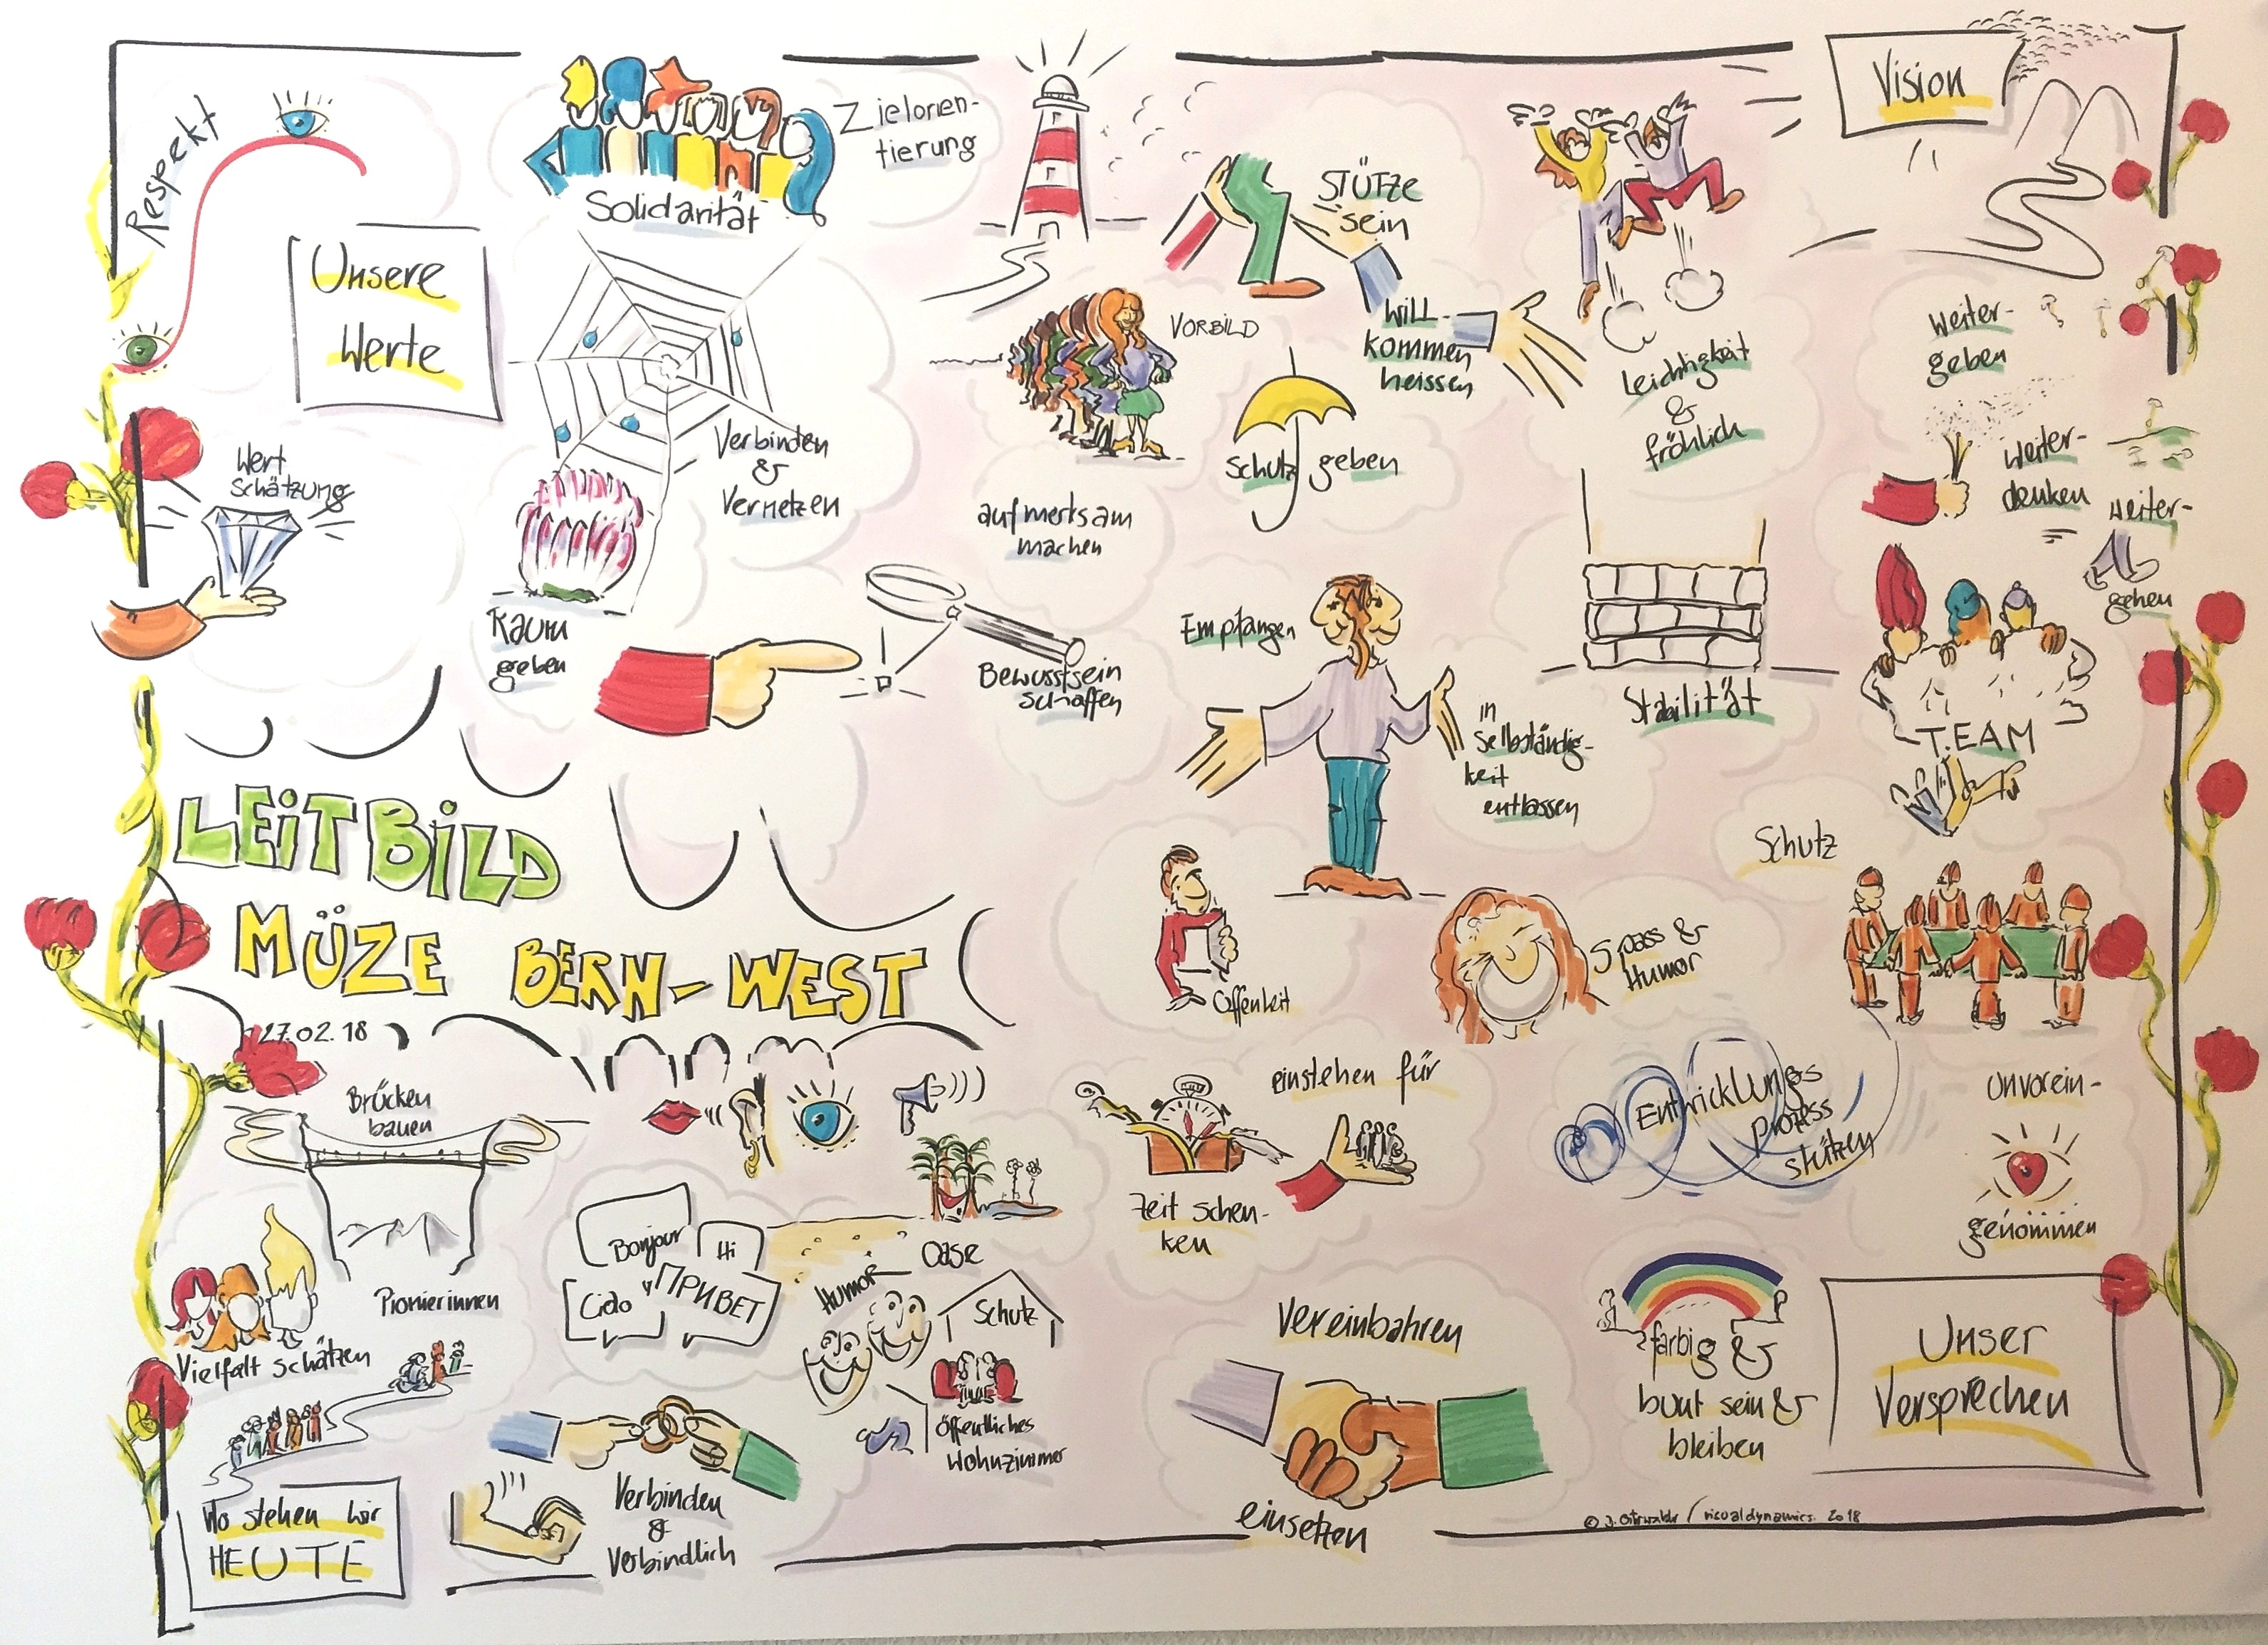 Respekt
Unsere
Werte
Solidarität
Zielorien-
tierung
Wert
schätzung
Verbinden
&
Vernetzen
Raum
geben
aufmerksam
machen
Bewusstsein
schaffen
VORBILD
STÜTZE
sein
Will-
kommen
heissen
Schutz geben
Leichtigkeit
&
fröhlich
Vision
Weiter-
geben
Weiter-
denken
Weiter-
gehen
Empfangen
in
Selbständig-
keit
entlassen
Stabilität
TEAM
LEITBILD
MÜZE BERN-WEST
27.02.18
Offenheit
Spass &
Humor
Schutz
Brücken
bauen
Pionierinnen
Vielfalt schätzen
Bonjour
Hi
Ciao
ПРИВЕТ
Oase
Humor
Schutz
öffentliches
Wohnzimmer
Wo stehen wir
HEUTE
Verbinden
&
Verbindlich
Zeit schen-
ken
einstehen für
Entwicklungs
prozess
stützen
Unvorein-
genommen
Vereinbahren
einsetzen
farbig &
bunt sein &
bleiben
Unser
Versprechen
visualdynamics 2018